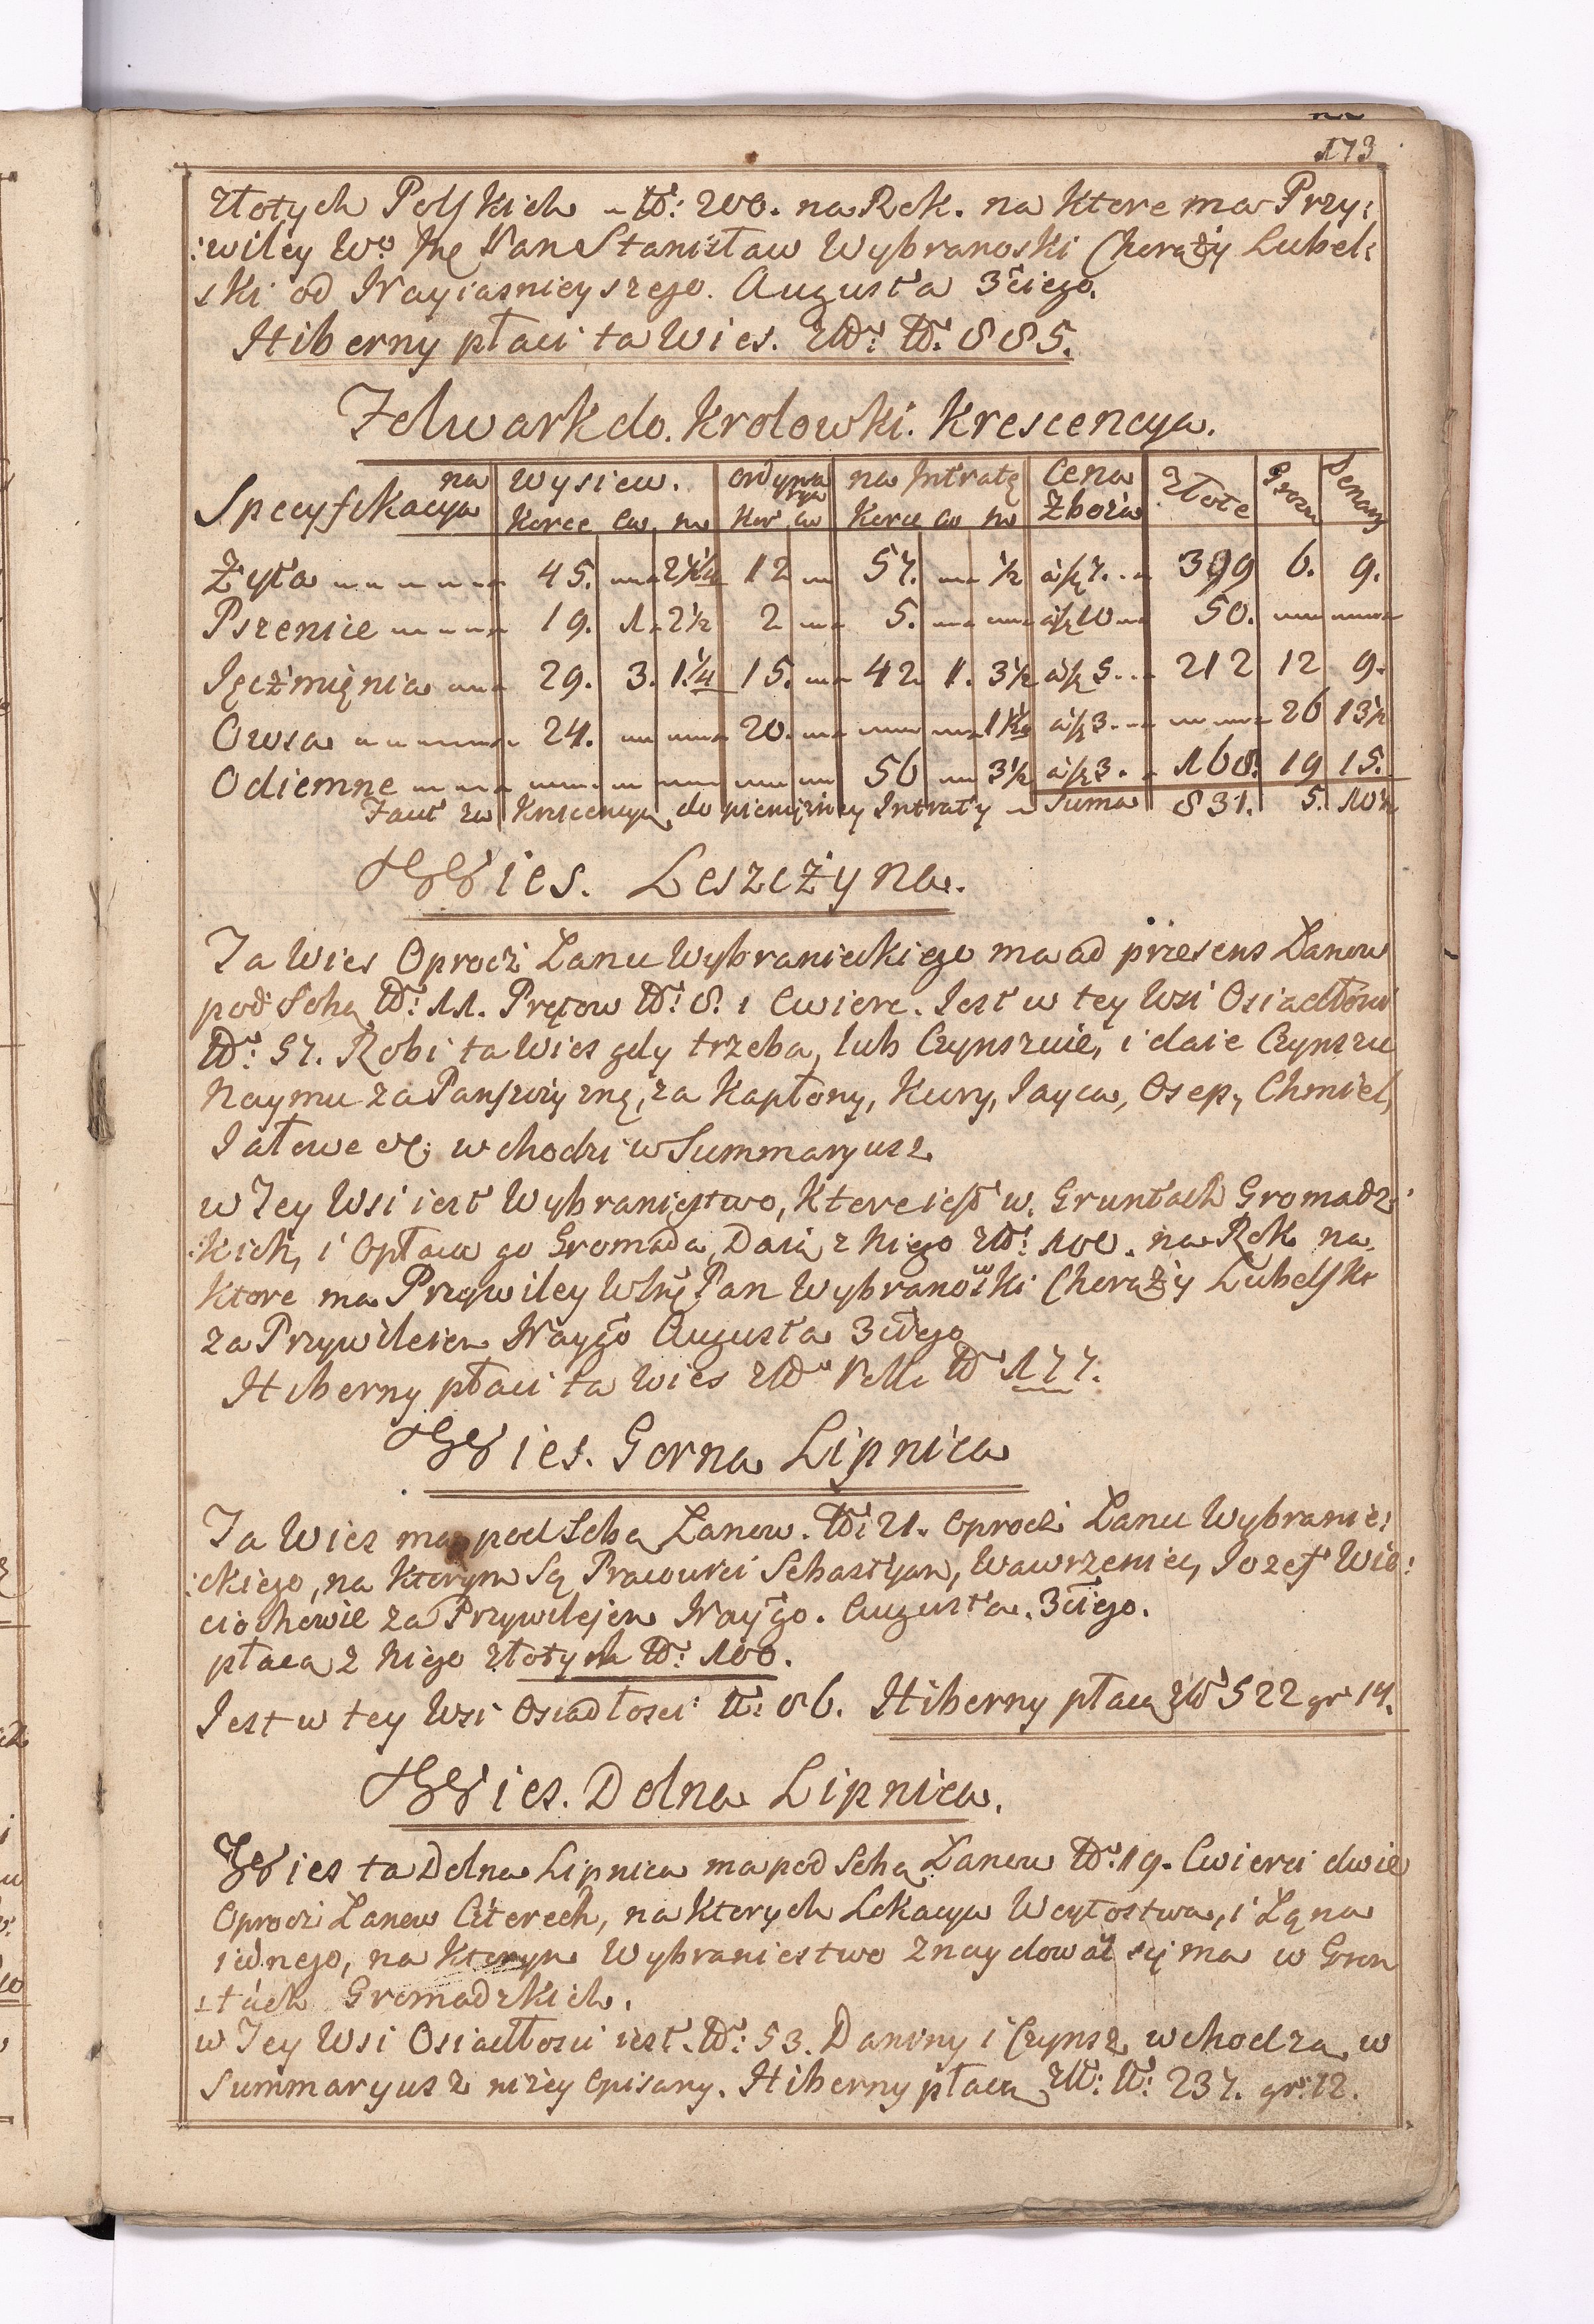 173
złotych Polskich – Nr: 200. na Rok. na ktore ma Przy:
:wiley Wo Jmę Pan Stanisław Wybranoski Chorąży Lubel:
ski od Nayiasnieyszego. Augusta 3ciego.
Hiberny płaci ta Wies. zł: Nr: 885.
Folwark do. Krolowki. Krescencya.
Specyfikacya na wysiew. Ordynarya na Intratę Cena Zboża Złote Grosze Denary
Korce Cw. m Kor cw Korce cw m
Żyta 45. 2 1/4 12 57. 1/2 à fl 7. 399 6. 9.
Pszenice 19. 1 2 1/2 2 5. à fl 10 50.
Jęczmięnia 29. 3. 1 1/4 15. 42 1. 3 1/2 à fl 5. 212 12 9.
Owsa 24. 20. 1 à fl 3. 26 13 1/2
Odiemne 56 3 1/2 à fl 3. 168. 19 15.
Facit za Krescencyą do pieniężney Intraty – Suma 831. 5. 10 1/2
Wies. Leszczyna.
Ta Wies Oprocz Łanu Wybranieckiego ma ad presens Łanow
pod Sobą Nr: 11. Prętow Nr: 8. 1 Cwierc. Jest w tey Wsi Osiadłosci
Nr: 57. Robi ta Wies gdy trzeba, lub Czynszuie, i daie Czynszu
Naymu za Panszczyznę, za Kapłony, Kury, Jayca, Osep, Chmiel,
Jałowe &c; wchodzi w Summaryusz
w Tey Wsi iest Wybraniestwo, Ktore iest w. Gruntach Gromadz:
:kich, i Opłaca go Gromada, Daią z Niego zł: 100. na Rok na
Ktore ma Przywiley WJmę Pan Wybranowski Chorąży Lubelski
za Przywileiem Naygo Augusta 3ciego
Hiberny płaci ta Wies zł Poll. Nr 177.
Wies. Gorna Lipnica
Ta Wies ma pod Sobą Łanow. Nr: 21. oprocz Łanu Wybranie:
:ckiego, na Ktorym Są Pracowici Sebastyan, Wawrzeniec, Jozef Wie:
ciochowie za Przywilejem Naygo. Augusta. 3ciego.
płacą z Niego złotych Nr: 100.
Jest w tey Wsi Osiadłosci Nr: 86. Hiberny płacą zł 522 gr 14.
Wies. Dolna Lipnica.
Wies ta Dolna Lipnica ma pod Sobą Łanow Nr: 19. Cwierci dwie
Oprocz Łanow Czterech, na ktorych Lokacya Woytostwa, i Łąna
iednego, na Ktorym Wybraniestwo znaydować się ma w Grun
:tach Gromadzkich.
w Tey Wsi Osiadłosci iest. Nr: 53. Daniny i Czynsz wchodzą w
Summaryusz niżey Opisany. Hiberny płacą zł: Nr: 237. gr: 12.